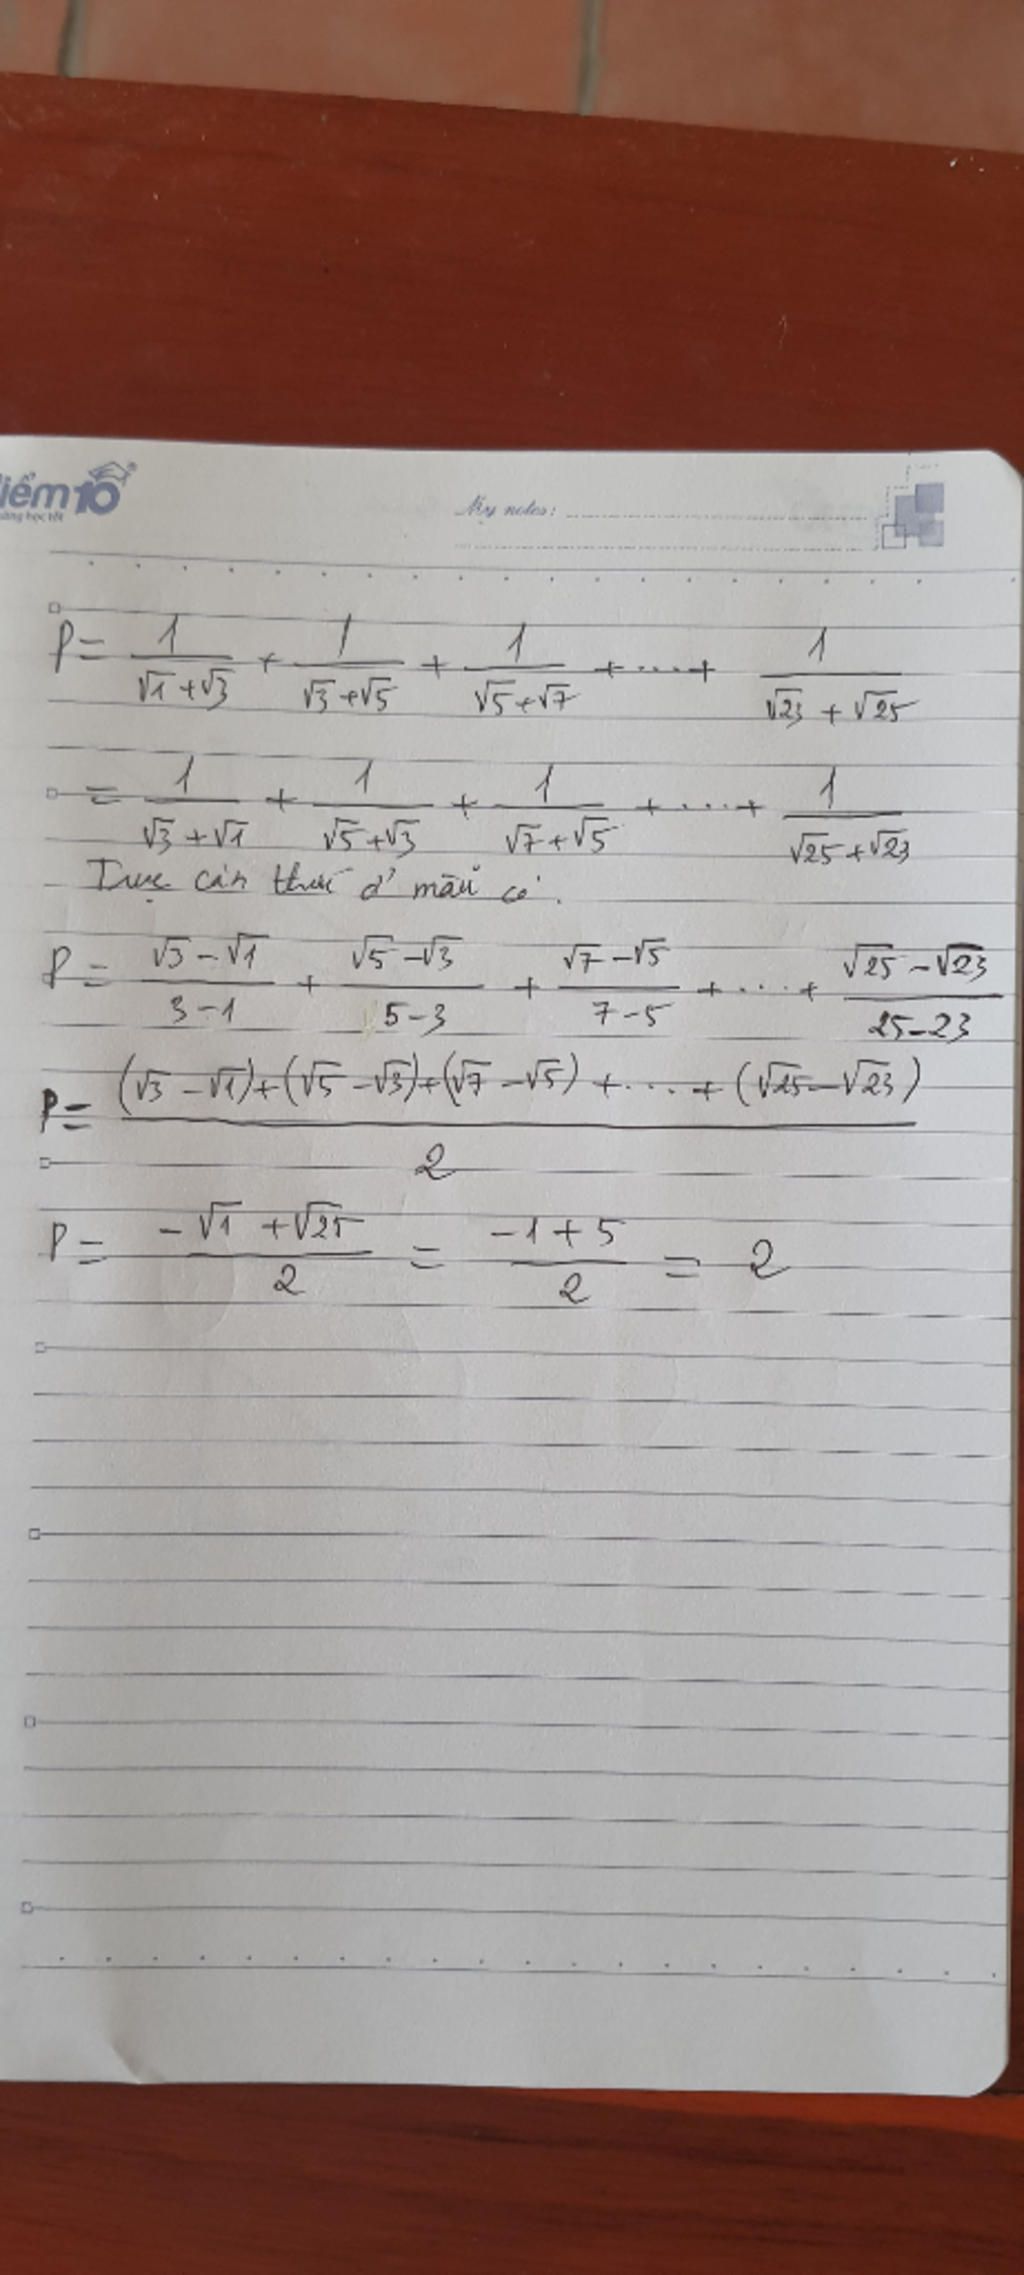 iểm10
My notes:
P = 1/(√1+√3) + 1/(√3+√5) + 1/(√5+√7) + .... + 1/(√23 + √25)
= 1/(√3+√1) + 1/(√5+√3) + 1/(√7+√5) + .... + 1/(√25+√23)
Trục căn thức ở mẫu có.
P = (√3-√1)/(3-1) + (√5-√3)/(5-3) + (√7-√5)/(7-5) + .... + (√25-√23)/(25-23)
P = ((√3-√1)+(√5-√3)+(√7-√5) + .... + (√25-√23))/2
P = (-√1 +√25)/2 = (-1+5)/2 = 2